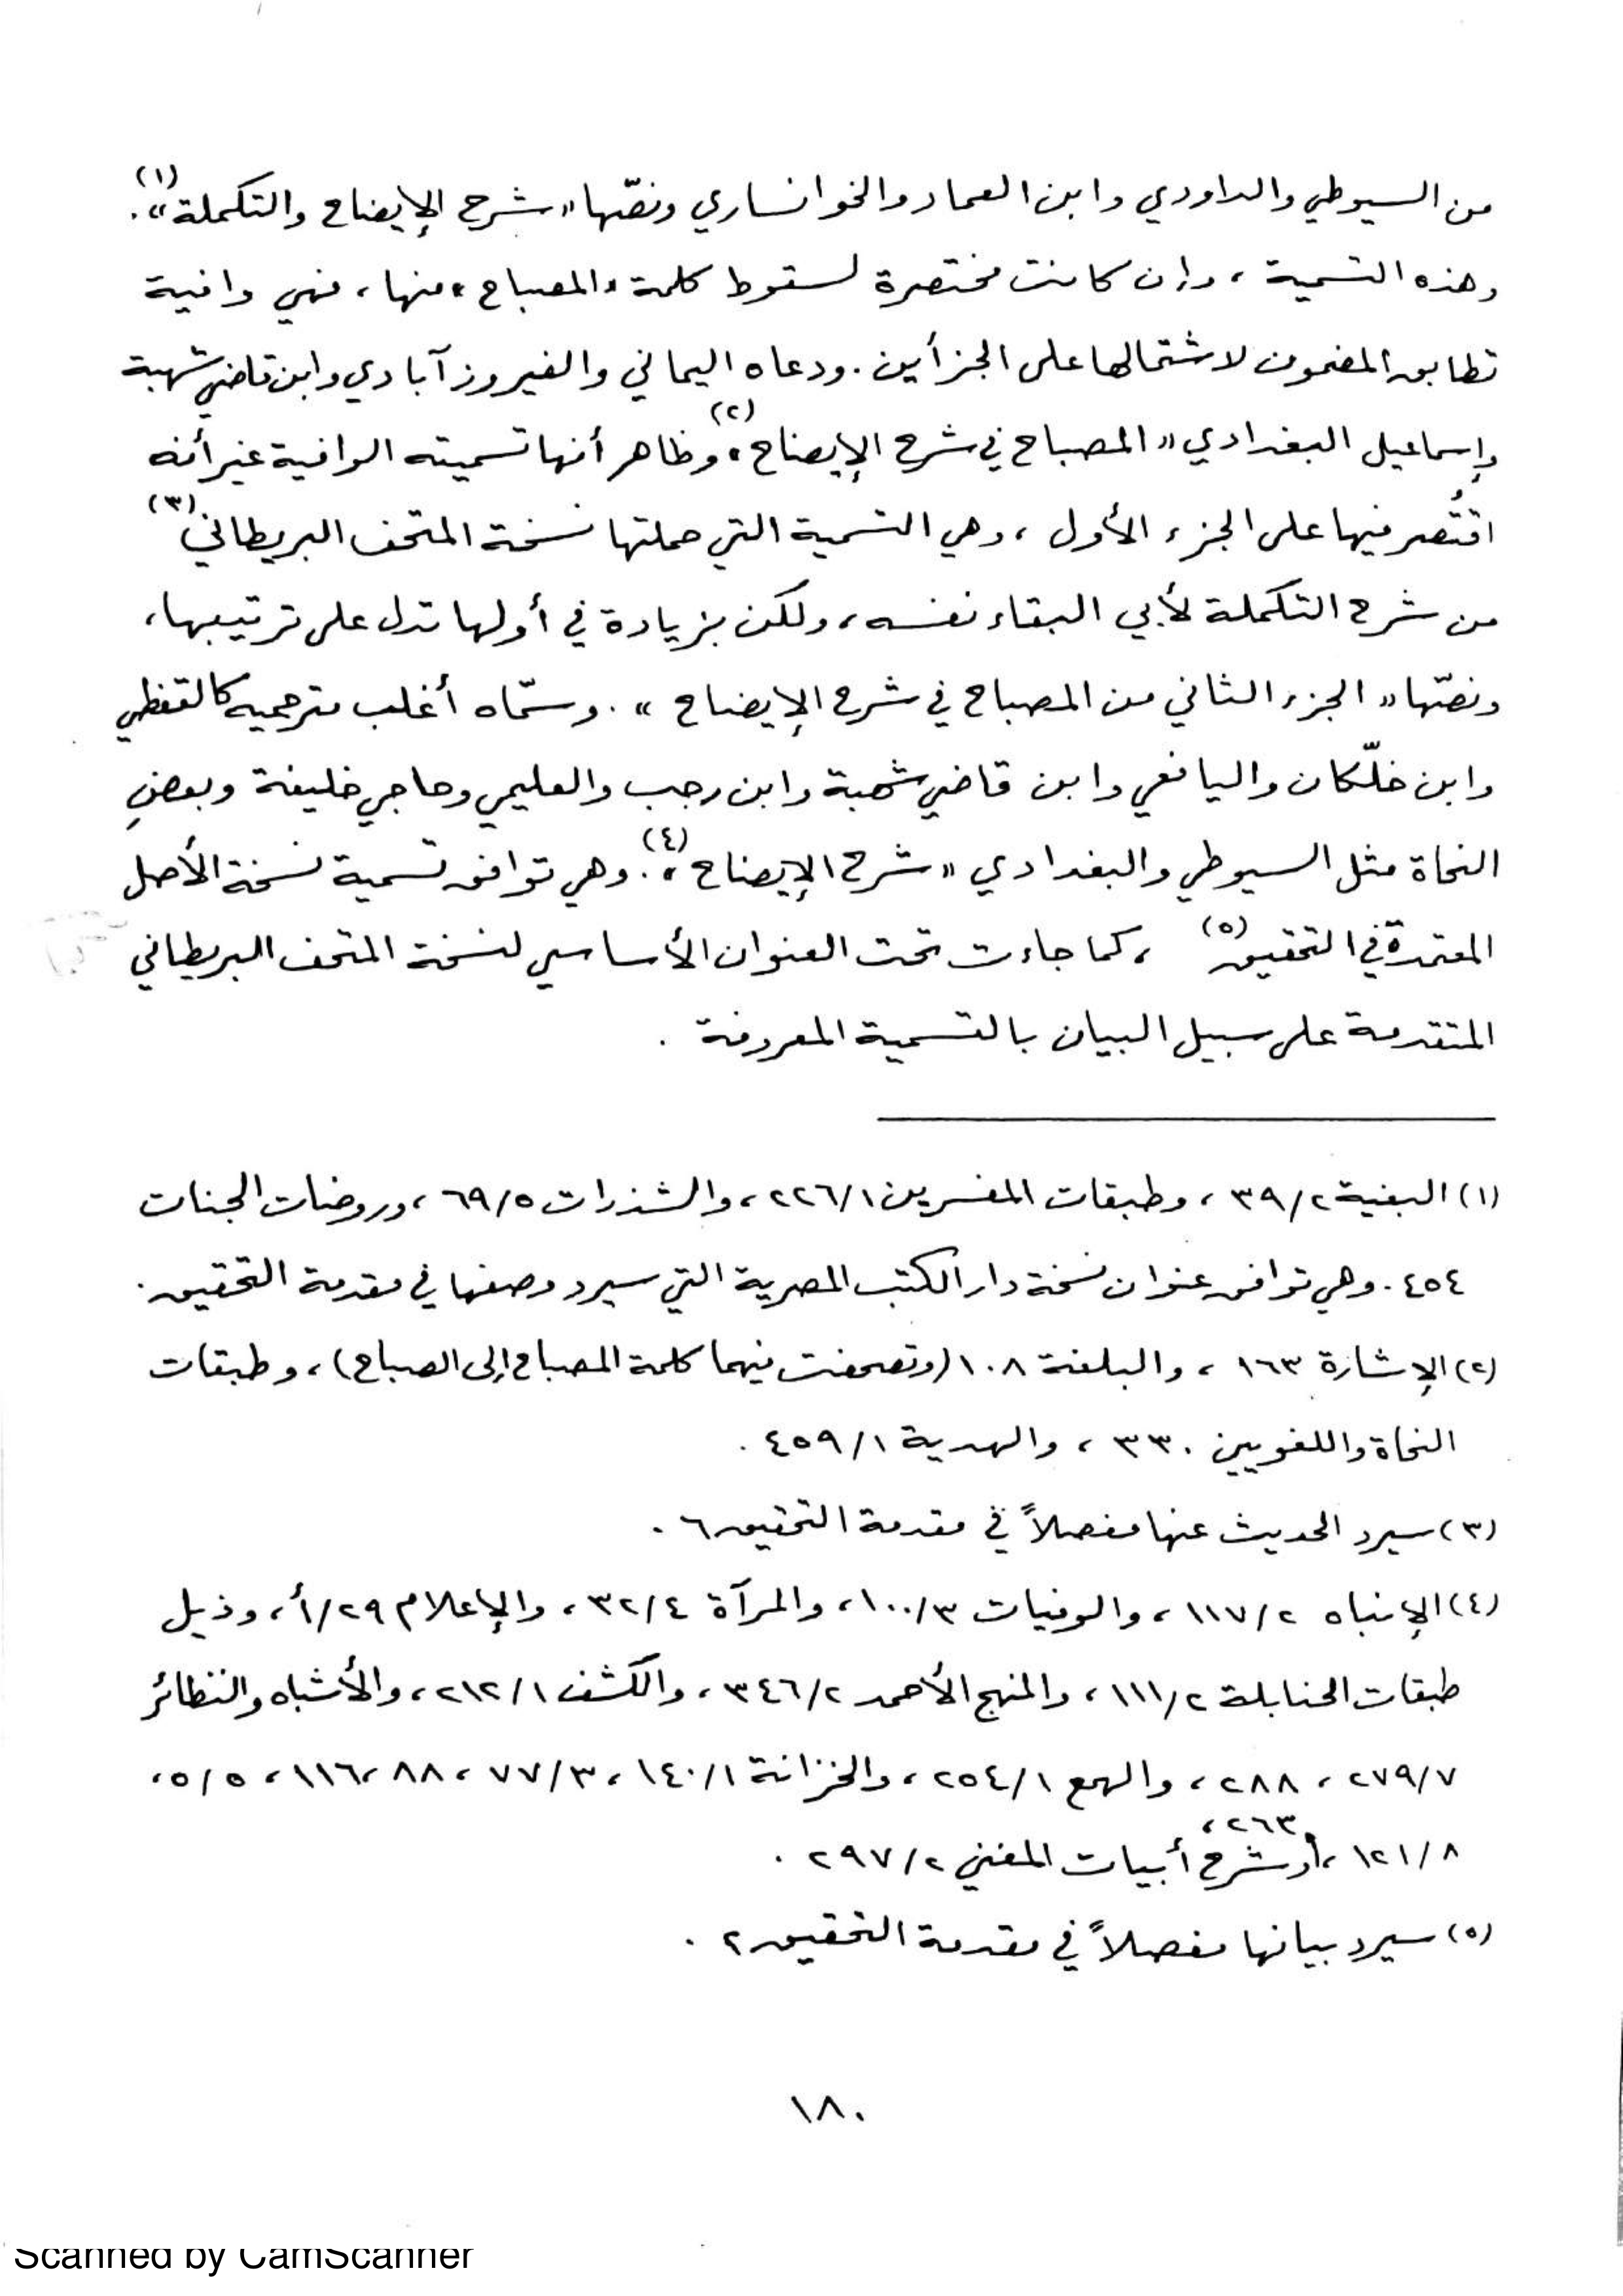 من السيوطي والداودي وابن العماد والخوانساري ونصّها «شرح الإيضاح والتكملة»(١).
وهذه التسمية ، وإن كانت مختصرة لسقوط كلمة «المصباح» منها، فهي وافية
تطابق المضمون لاشتمالها على الجزأين. ودعاه اليماني والفيروزآبادي وابن قاضي شهبة
وإسماعيل البغدادي «المصباح في شرح الإيضاح»(٢) وظاهر أنها تسميته الوافية غير أنه
اقتُصر فيها على الجزء الأول ، وهي التسمية التي حملتها نسخة المتحف البريطاني(٣)
من شرح التكملة لأبي البقاء نفسه ، ولكن بزيادة في أولها تدل على ترتيبها،
ونصّها «الجزء الثاني من المصباح في شرح الإيضاح» . وسمّاه أغلب مترجميه كالقفطي
وابن خلّكان واليافعي وابن قاضي شهبة وابن رجب والعليمي وحاجي خليفة وبعضِ
النحاة مثل السيوطي والبغدادي «شرح الإيضاح»(٤). وهي توافق تسمية نسخة الأصل
المعتمدة في التحقيق(٥) ، كما جاءت تحت العنوان الأساسي لنسخة المتحف البريطاني
المتقدمة على سبيل البيان بالتسمية المعروفة .
(١) البغية ٣٩/٢ ، وطبقات المفسرين ٢٢٦/١ ، والشذرات ٦٩/٥ ، وروضات الجنات
٤٥٤. وهي توافق عنوان نسخة دار الكتب المصرية التي سيرد وصفها في مقدمة التحقيق.
(٢) الإشارة ١٦٣ ، والبلغة ١٠٨ (وتصحفت فيهما كلمة المصباح إلى الصباح) ، وطبقات
النحاة واللغويين ٣٣٠ ، والهدية ٤٥٩/١ .
(٣) سيرد الحديث عنها مفصلاً في مقدمة التحقيق ٦ .
(٤) الإنباه ١١٧/٢ ، والوفيات ١٠٠/٣ ، والمرآة ٣٢/٤ ، والإعلام ٢٩/أ ، وذيل
طبقات الحنابلة ١١١/٢ ، والمنهج الأحمد ٣٤٦/٢ ، والكشف ٢١٢/١ ، والأشباه والنظائر
٢٧٩/٧ ، ٢٨٨ ، والهمع ٢٥٤/١ ، والخزانة ١٤٠/١ ، ٧٧/٣ ، ٨٨ ، ١١٦ ، ٥/٥ ،
٢٦٣ ،
١٢١/٨ ، وشرح أبيات المغني ٢٩٧/٢ .
(٥) سيرد بيانها مفصلاً في مقدمة التحقيق ٢ .
١٨٠
Scanned by CamScanner